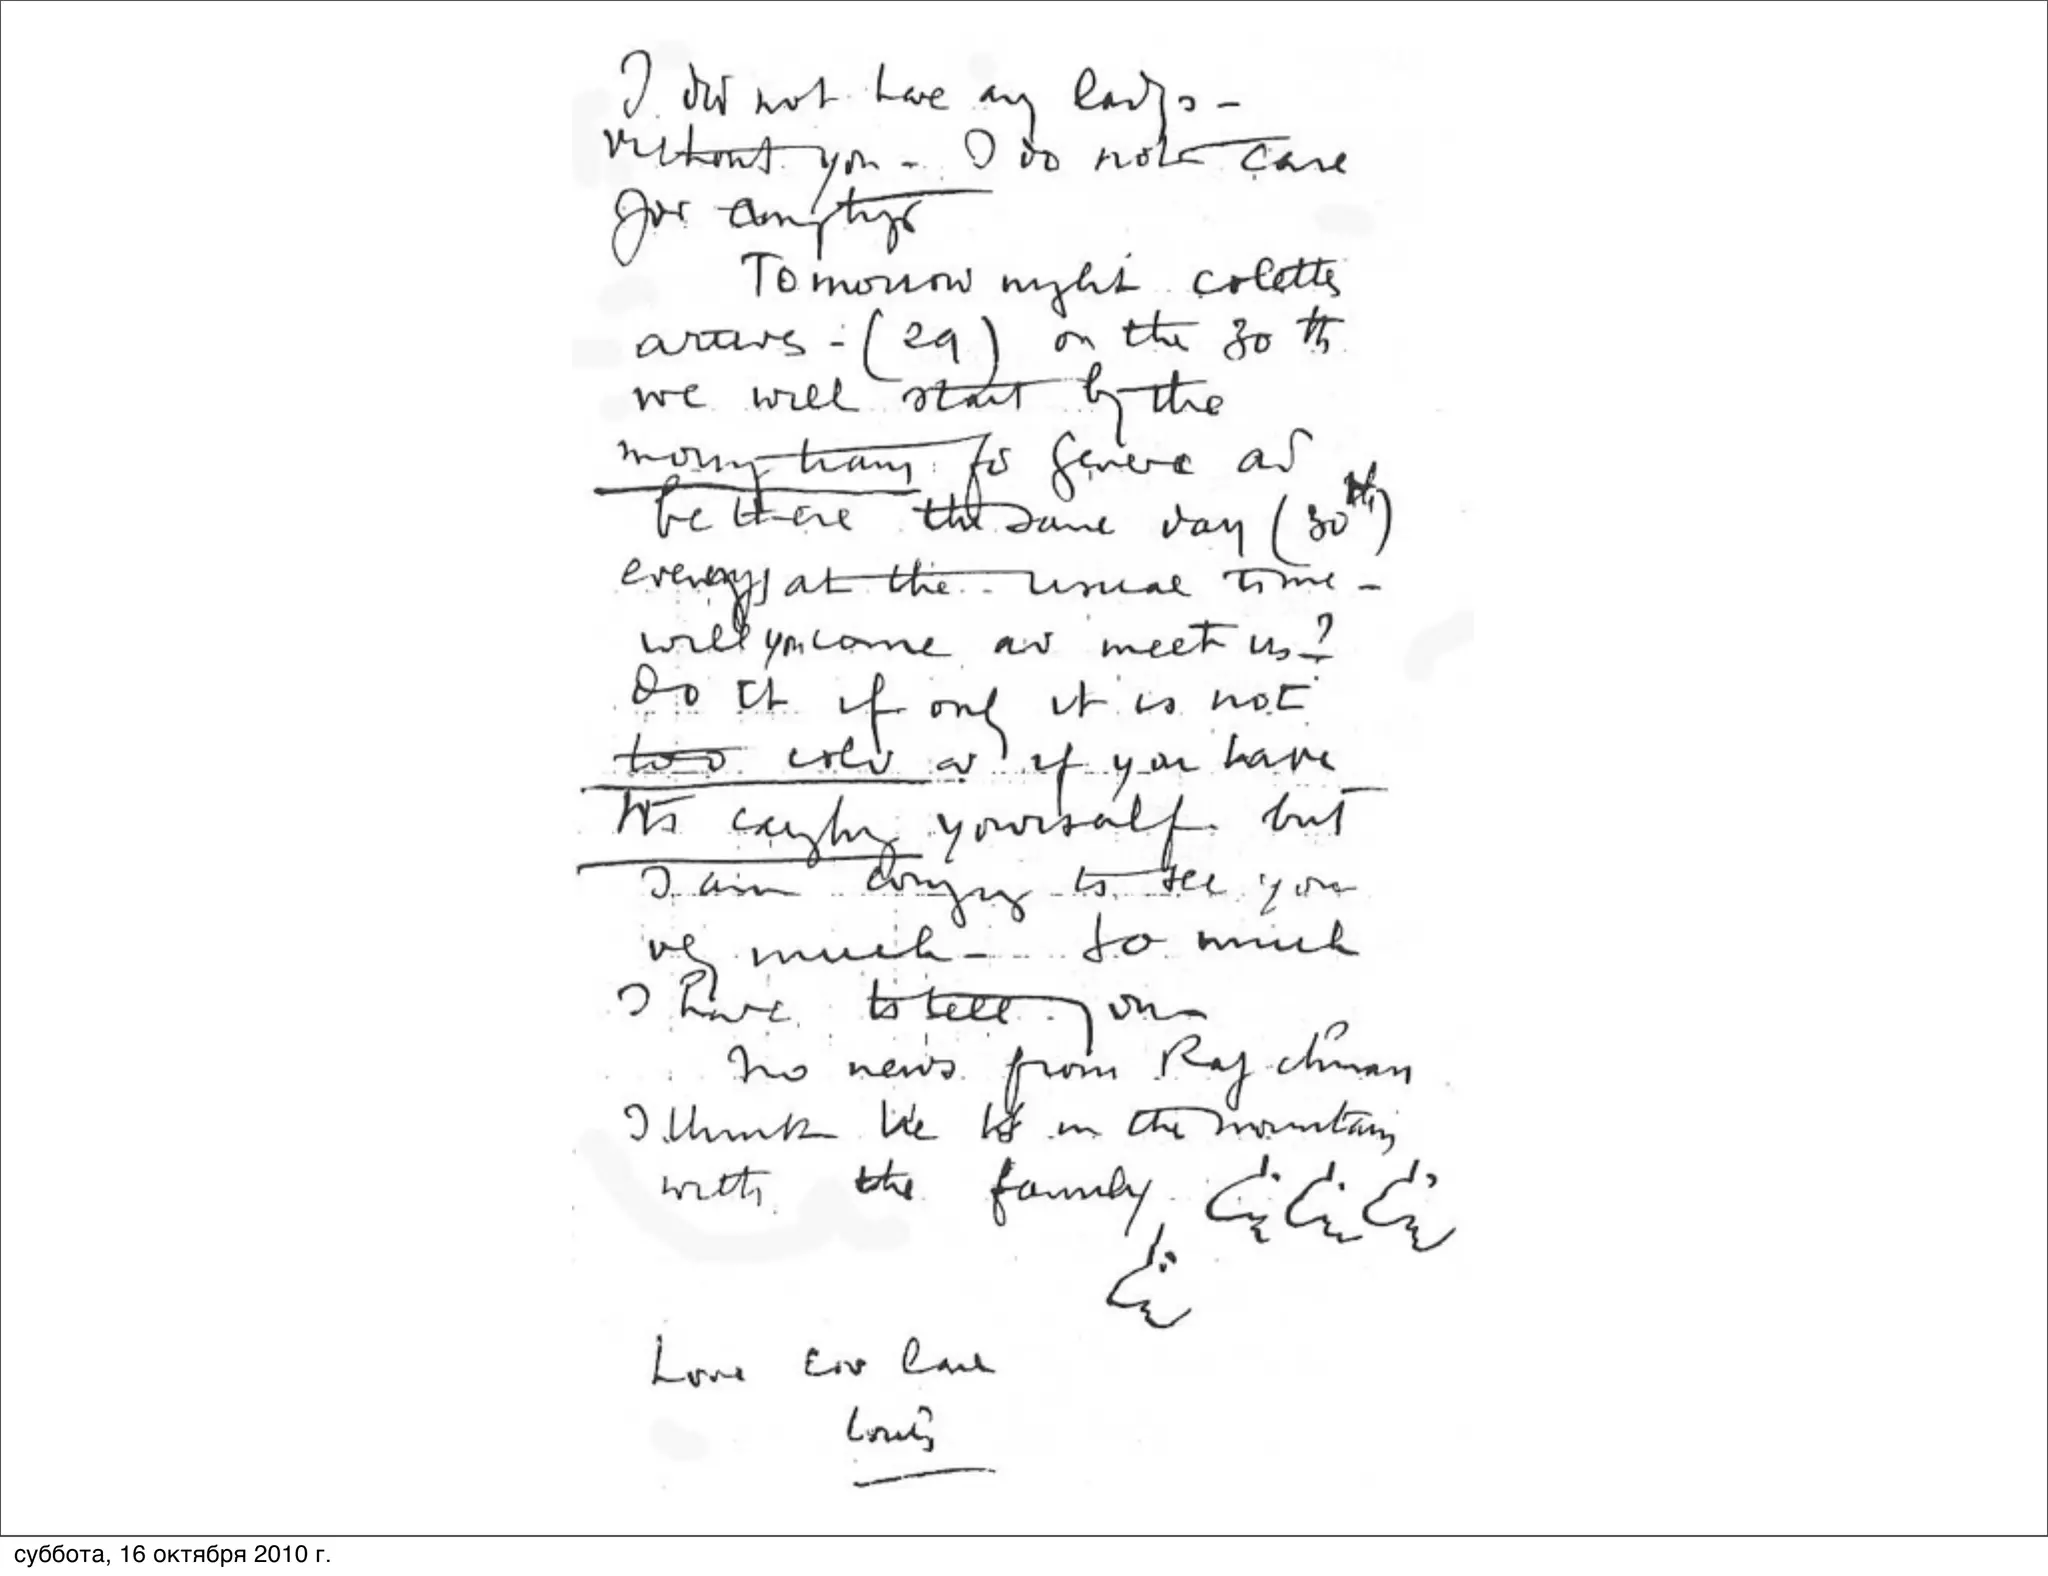 I did not have any
without you - I do not care
for
Tomorrow night colette
arrives - (29) on the 30th
we will start by the
to Geneve ad
be there the same day (30th)
at the usual time -
will you come ad meet us?
Do it if only it is not
too cold ad if you have
yourself but
I am to see you
much - so much
I have to tell you
No news from Rajchman
I think he is in the mountains
with the family
Love
Louis
суббота, 16 октября 2010 г.